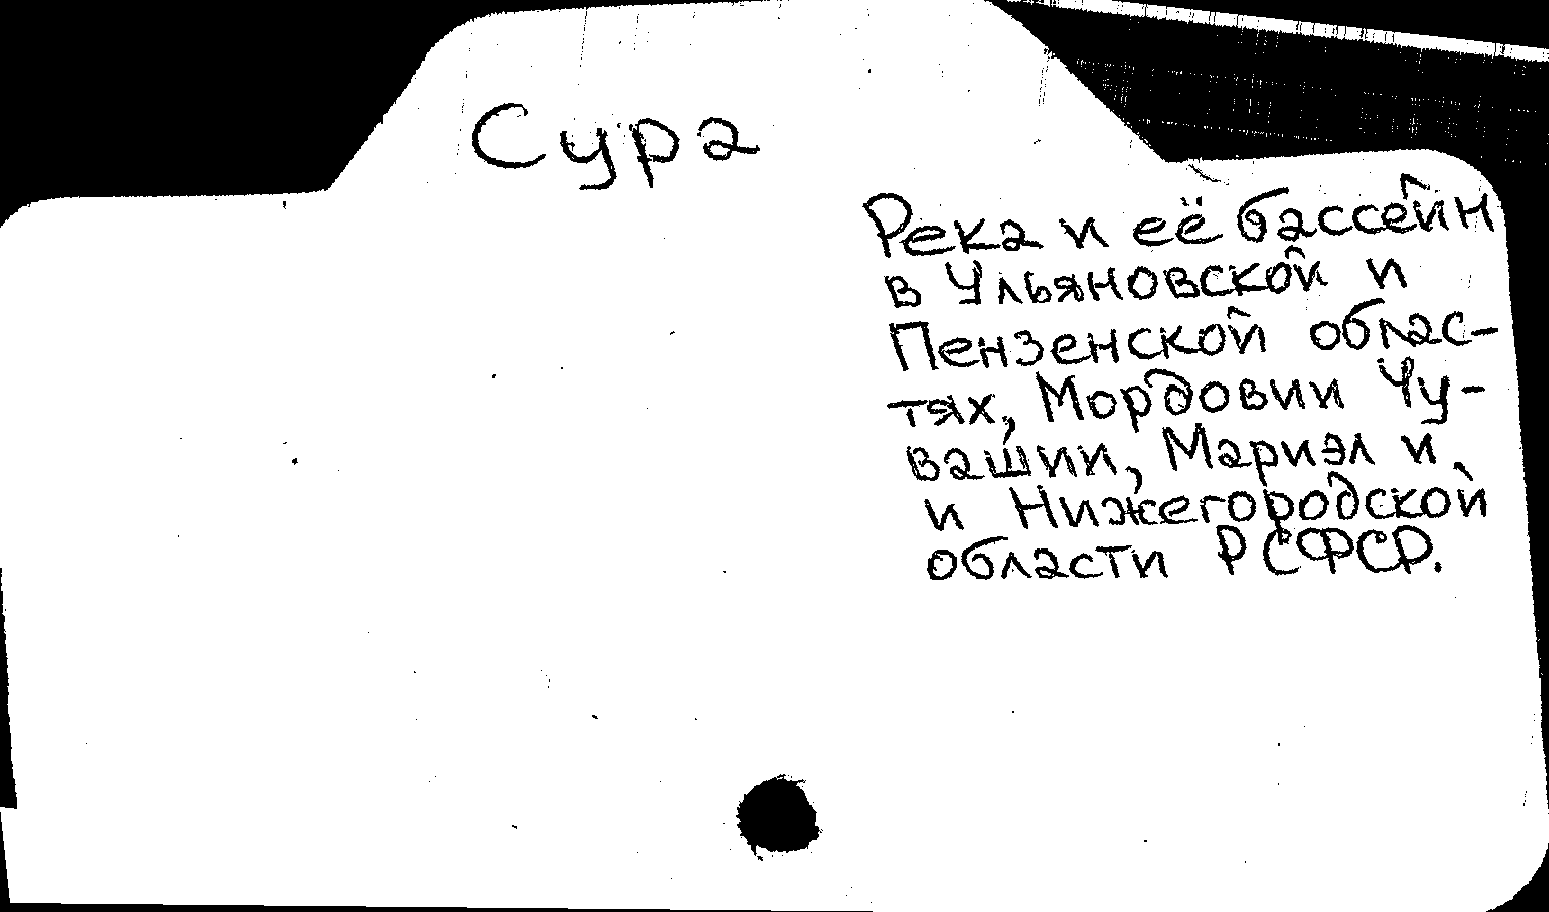 Сура
Река и её бассейн
в Ульяновской и
Пензенской облас-
тях, Мордовии Чу-
вашии, Мариэл и
и Нижегородской
области РСФСР.